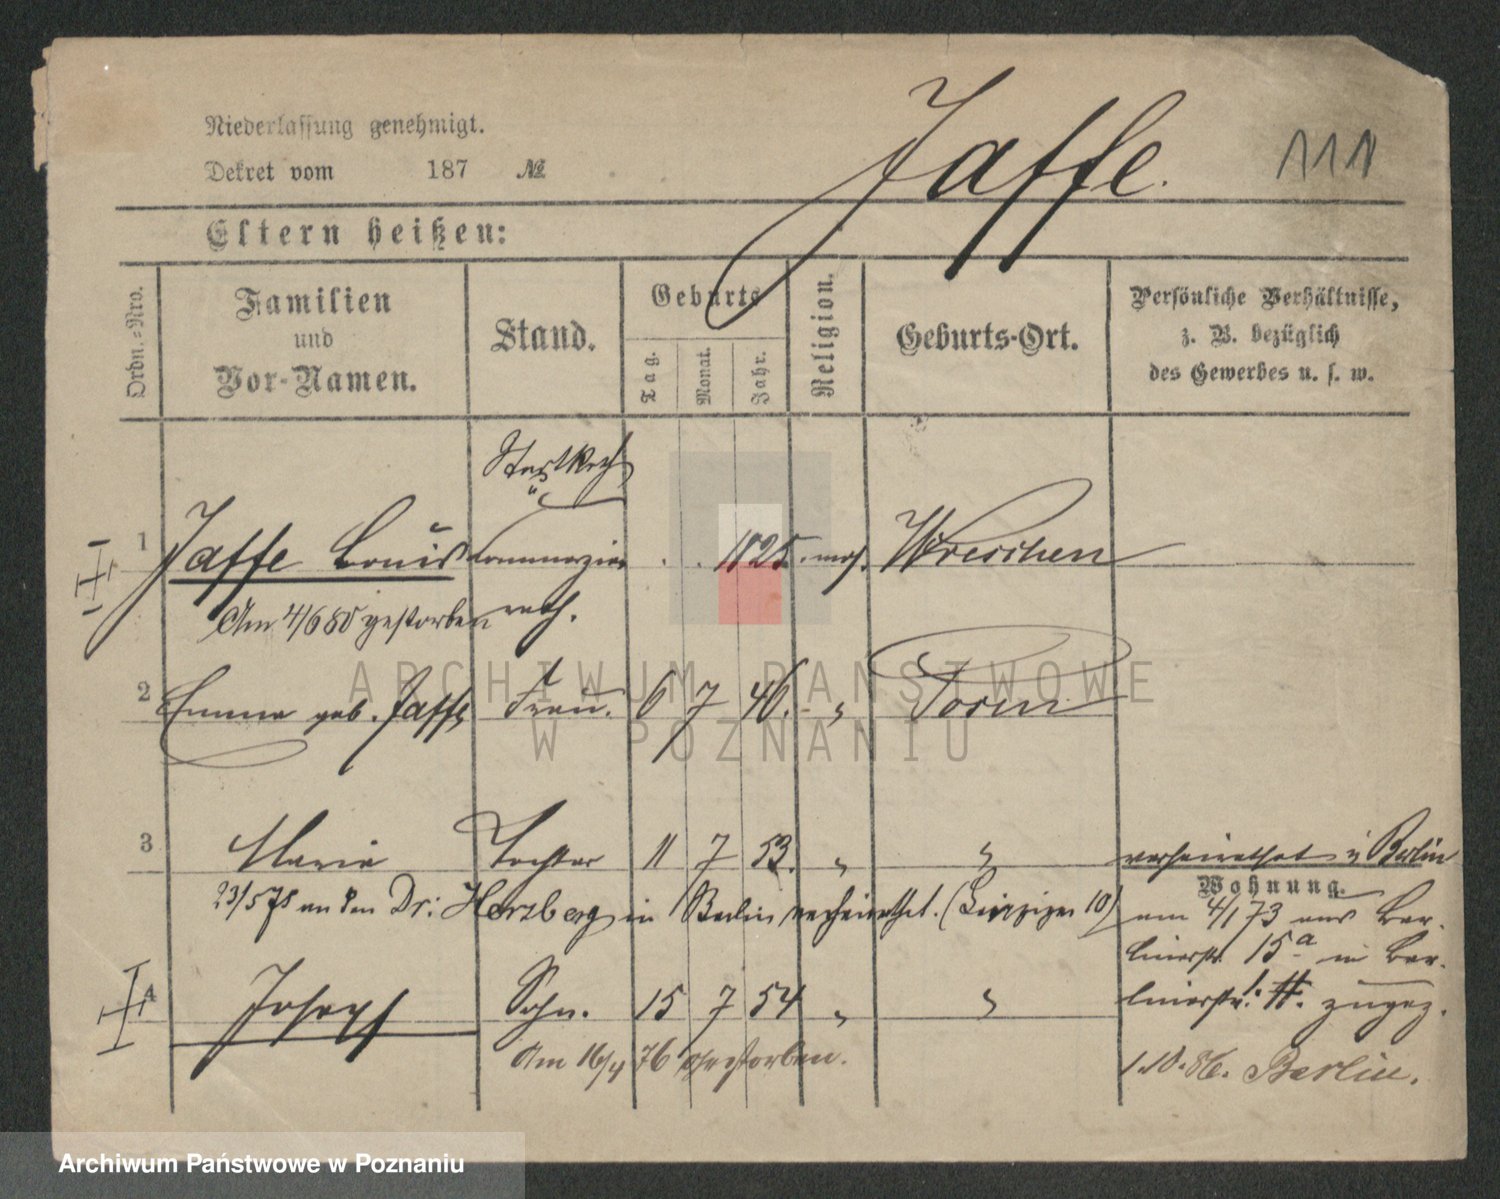 Niederlassung genehmigt.
Jaffe.
111
Dekret vom 187 №
Eltern heißen:
Ordn.-Nro.
Familien
und
Vor-Namen.
Stand.
Geburts
Tag.
Monat.
Jahr.
Religion.
Geburts-Ort.
Persönliche Verhältnisse,
z. B. bezüglich
des Gewerbes u. s. w.
1 Jaffe Louis Commerzien 1825. mos. Wreschen
Am 4/6 80 gestorben rath.
2 Emma geb. Jaffe Frau. 6 7 46. " Posen
3 Marie Tochter 11 7 53. " " verheirathet i Berlin
Wohnung.
23/5 78 an den Dr: Herzberg in Berlin verheirathet. (Leipziger 10)
am 4/1 73 aus Ber-
linerstr. 15a in Ber-
4 Joseph Sohn. 15 7 54 " " linerstr. zugez.
Am 16/4 76 gestorben.
1.10.86. Berlin.
ARCHIWUM PAŃSTWOWE
W POZNANIU
Archiwum Państwowe w Poznaniu